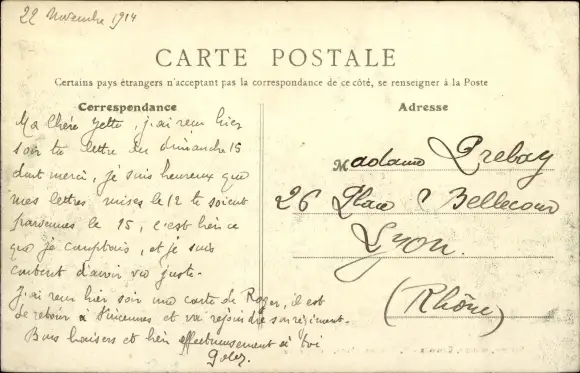 22 Novembre 1914
CARTE POSTALE
Certains pays étrangers n'acceptant pas la correspondance de ce côté, se renseigner à la Poste
Correspondance
Ma chère Yette, j'ai reçu hier
soir ta lettre du dimanche 15
dont merci, je suis heureux que
mes lettres mises le 12 te soient
parvenues le 15, c'est bien ce
que je comptais, et je suis
content d'avoir vu juste.
J'ai reçu hier soir une carte de Roger, il est
de retour à Vincennes et va rejoindre son régiment.
Bons baisers et bien affectueusement à toi
Adresse
Madame Prebay
26 Place Bellecour
Lyon.
(Rhône)